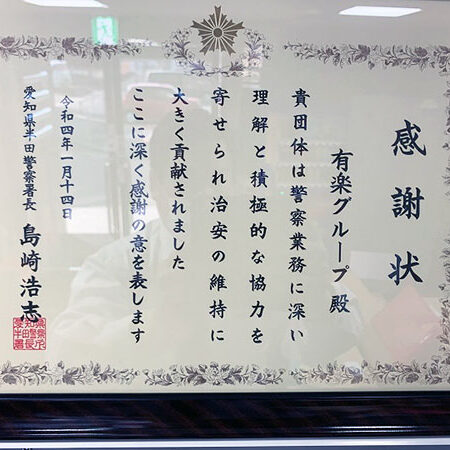 感謝状
有楽グループ殿
貴団体は警察業務に深い
理解と積極的な協力を
寄せられ治安の維持に
大きく貢献されました
ここに深く感謝の意を表します
令和四年一月十四日
愛知県半田警察署長 島崎浩志